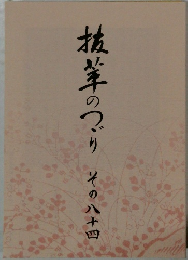 抜萃のつゞり
その八十四